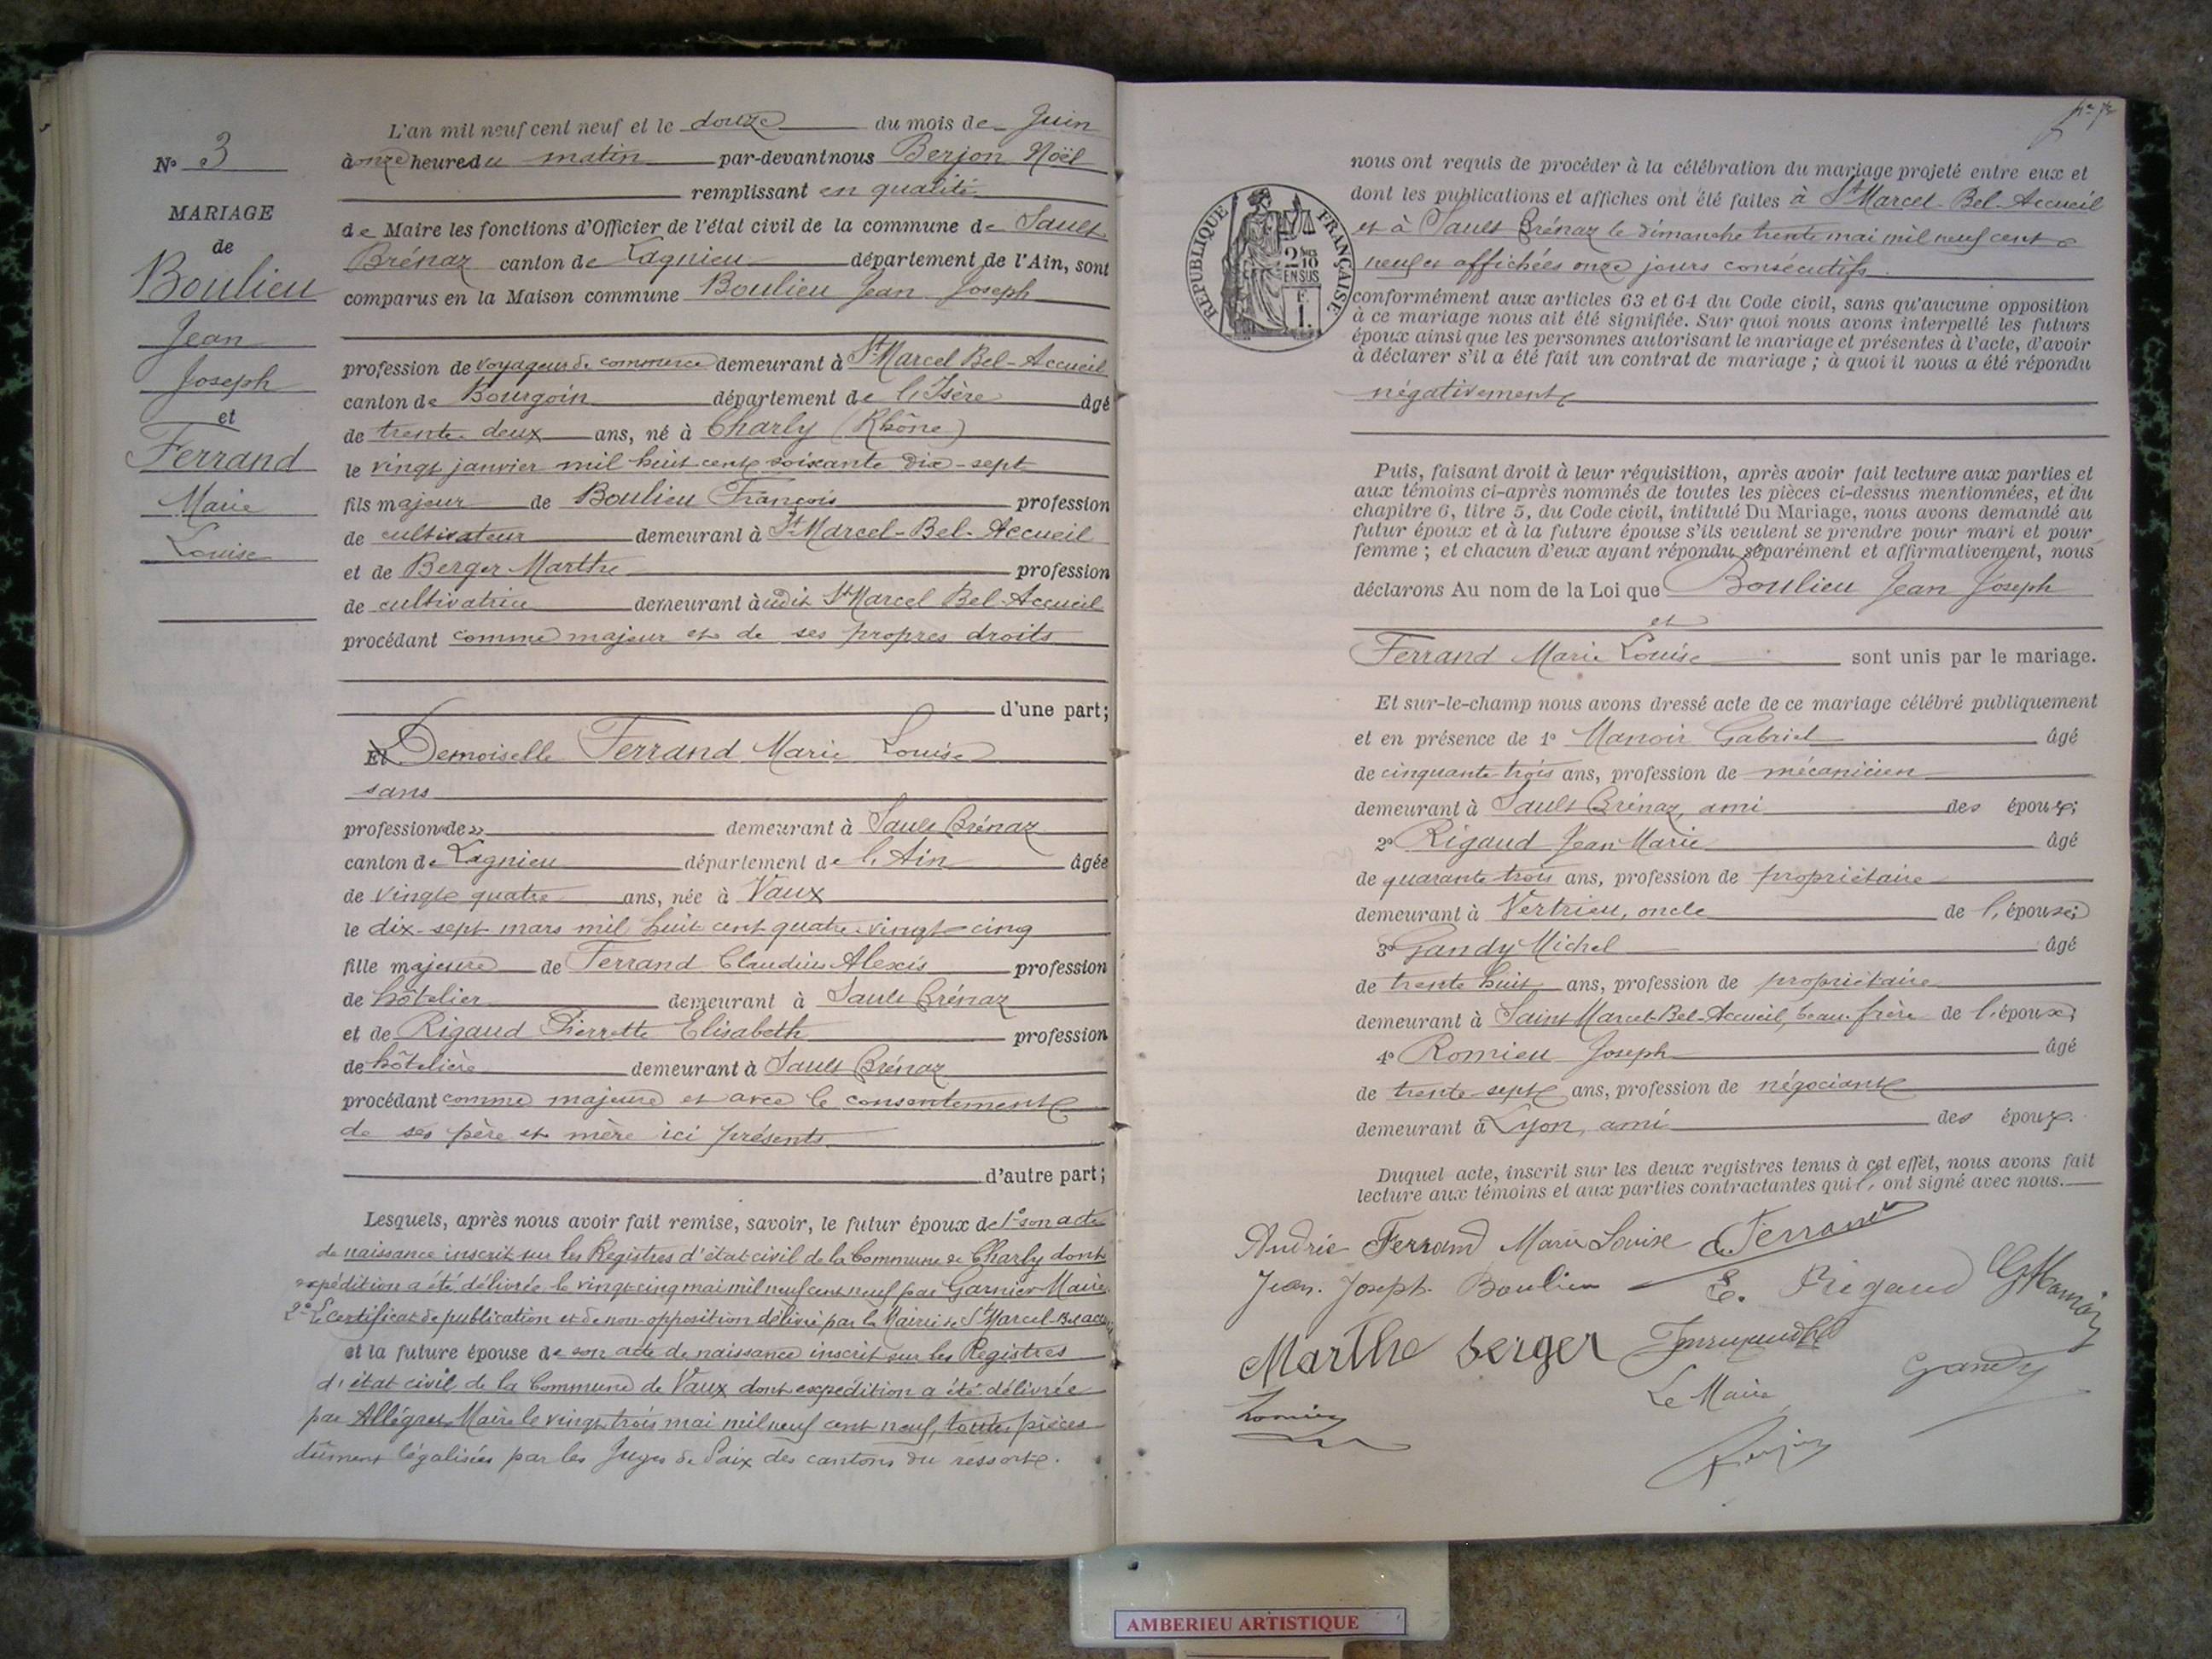 N° 3
MARIAGE
de
Boulieu
Jean
Joseph
et
Ferrand
Marie
Louise
L'an mil neuf cent neuf et le douze du mois de Juin
à onze heure du matin par-devant nous Berjon Noël
remplissant en qualité
de Maire les fonctions d'Officier de l'état civil de la commune de Sault
Brénaz canton de Lagnieu département de l'Ain, sont
comparus en la Maison commune Boulieu Jean Joseph
profession de voyageur de commerce demeurant à St Marcel Bel-Accueil
canton de Bourgoin département de l'Isère âgé
de trente-deux ans, né à Charly (Rhône)
le vingt janvier mil huit cent soixante dix-sept
fils majeur de Boulieu François profession
de cultivateur demeurant à St Marcel-Bel-Accueil
et de Berger Marthe profession
de cultivatrice demeurant à udit St Marcel Bel-Accueil
procédant comme majeur et de ses propres droits
d'une part;
Et Demoiselle Ferrand Marie Louise
sans
profession de » demeurant à Sault Brénaz
canton de Lagnieu département de l'Ain âgée
de vingt quatre ans, née à Vaux
le dix-sept mars mil huit cent quatre-vingt-cinq
fille majeure de Ferrand Claudius Alexis profession
de hôtelier demeurant à Sault Brénaz
et de Rigaud Pierrette Elisabeth profession
de hôtelière demeurant à Sault Brénaz
procédant comme majeure et avec le consentement
de ses père et mère ici présents
d'autre part;
Lesquels, après nous avoir fait remise, savoir, le futur époux de 1° son acte
de naissance inscrit sur les Registres d'état civil de la Commune de Charly dont
expédition a été délivrée le vingt-cinq mai mil neuf cent neuf par Garnier Maire
2° Le certificat de publication et de non-opposition délivré par la Mairie de St Marcel-Bel acc
et la future épouse de son acte de naissance inscrit sur les Registres
d'état civil de la Commune de Vaux dont expédition a été délivrée
par Allégret, Maire le vingt trois mai mil neuf cent neuf, toutes pièces
dûment légalisées par les Juges de Paix des cantons du ressort.
nous ont requis de procéder à la célébration du mariage projeté entre eux et
dont les publications et affiches ont été faites à St Marcel-Bel-Accueil
et à Sault Brénaz le dimanche trente mai mil neuf cent
neuf et affichées onze jours consécutifs
RÉPUBLIQUE FRANÇAISE
2/10 EN SUS
1 F.
conformément aux articles 63 et 64 du Code civil, sans qu'aucune opposition
à ce mariage nous ait été signifiée. Sur quoi nous avons interpellé les futurs
époux ainsi que les personnes autorisant le mariage et présentes à l'acte, d'avoir
à déclarer s'il a été fait un contrat de mariage ; à quoi il nous a été répondu
négativement
Puis, faisant droit à leur réquisition, après avoir fait lecture aux parties et
aux témoins ci-après nommés de toutes les pièces ci-dessus mentionnées, et du
chapitre 6, titre 5, du Code civil, intitulé Du Mariage, nous avons demandé au
futur époux et à la future épouse s'ils veulent se prendre pour mari et pour
femme ; et chacun d'eux ayant répondu séparément et affirmativement, nous
déclarons Au nom de la Loi que Boulieu Jean Joseph
et
Ferrand Marie Louise sont unis par le mariage.
Et sur-le-champ nous avons dressé acte de ce mariage célébré publiquement
et en présence de 1° Manoir Gabriel âgé
de cinquante trois ans, profession de mécanicien
demeurant à Sault Brénaz, ami des époux;
2° Rigaud Jean Marie âgé
de quarante trois ans, profession de propriétaire
demeurant à Vertrieu, oncle de l'épouse;
3° Gandy Michel âgé
de trente huit ans, profession de propriétaire
demeurant à Saint Marcel-Bel-Accueil, beau-frère de l'époux;
4° Romieu Joseph âgé
de trente-sept ans, profession de négociant
demeurant à Lyon, ami des époux.
Duquel acte, inscrit sur les deux registres tenus à cet effet, nous avons fait
lecture aux témoins et aux parties contractantes qui l' ont signé avec nous.
Andrée Ferrand Marie Louise C. Ferrand
Jean. Joseph. Boulieu E. Rigaud G Manoir
Marthe berger
Gandy
Le Maire
Romieu
Berjon
AMBERIEU ARTISTIQUE